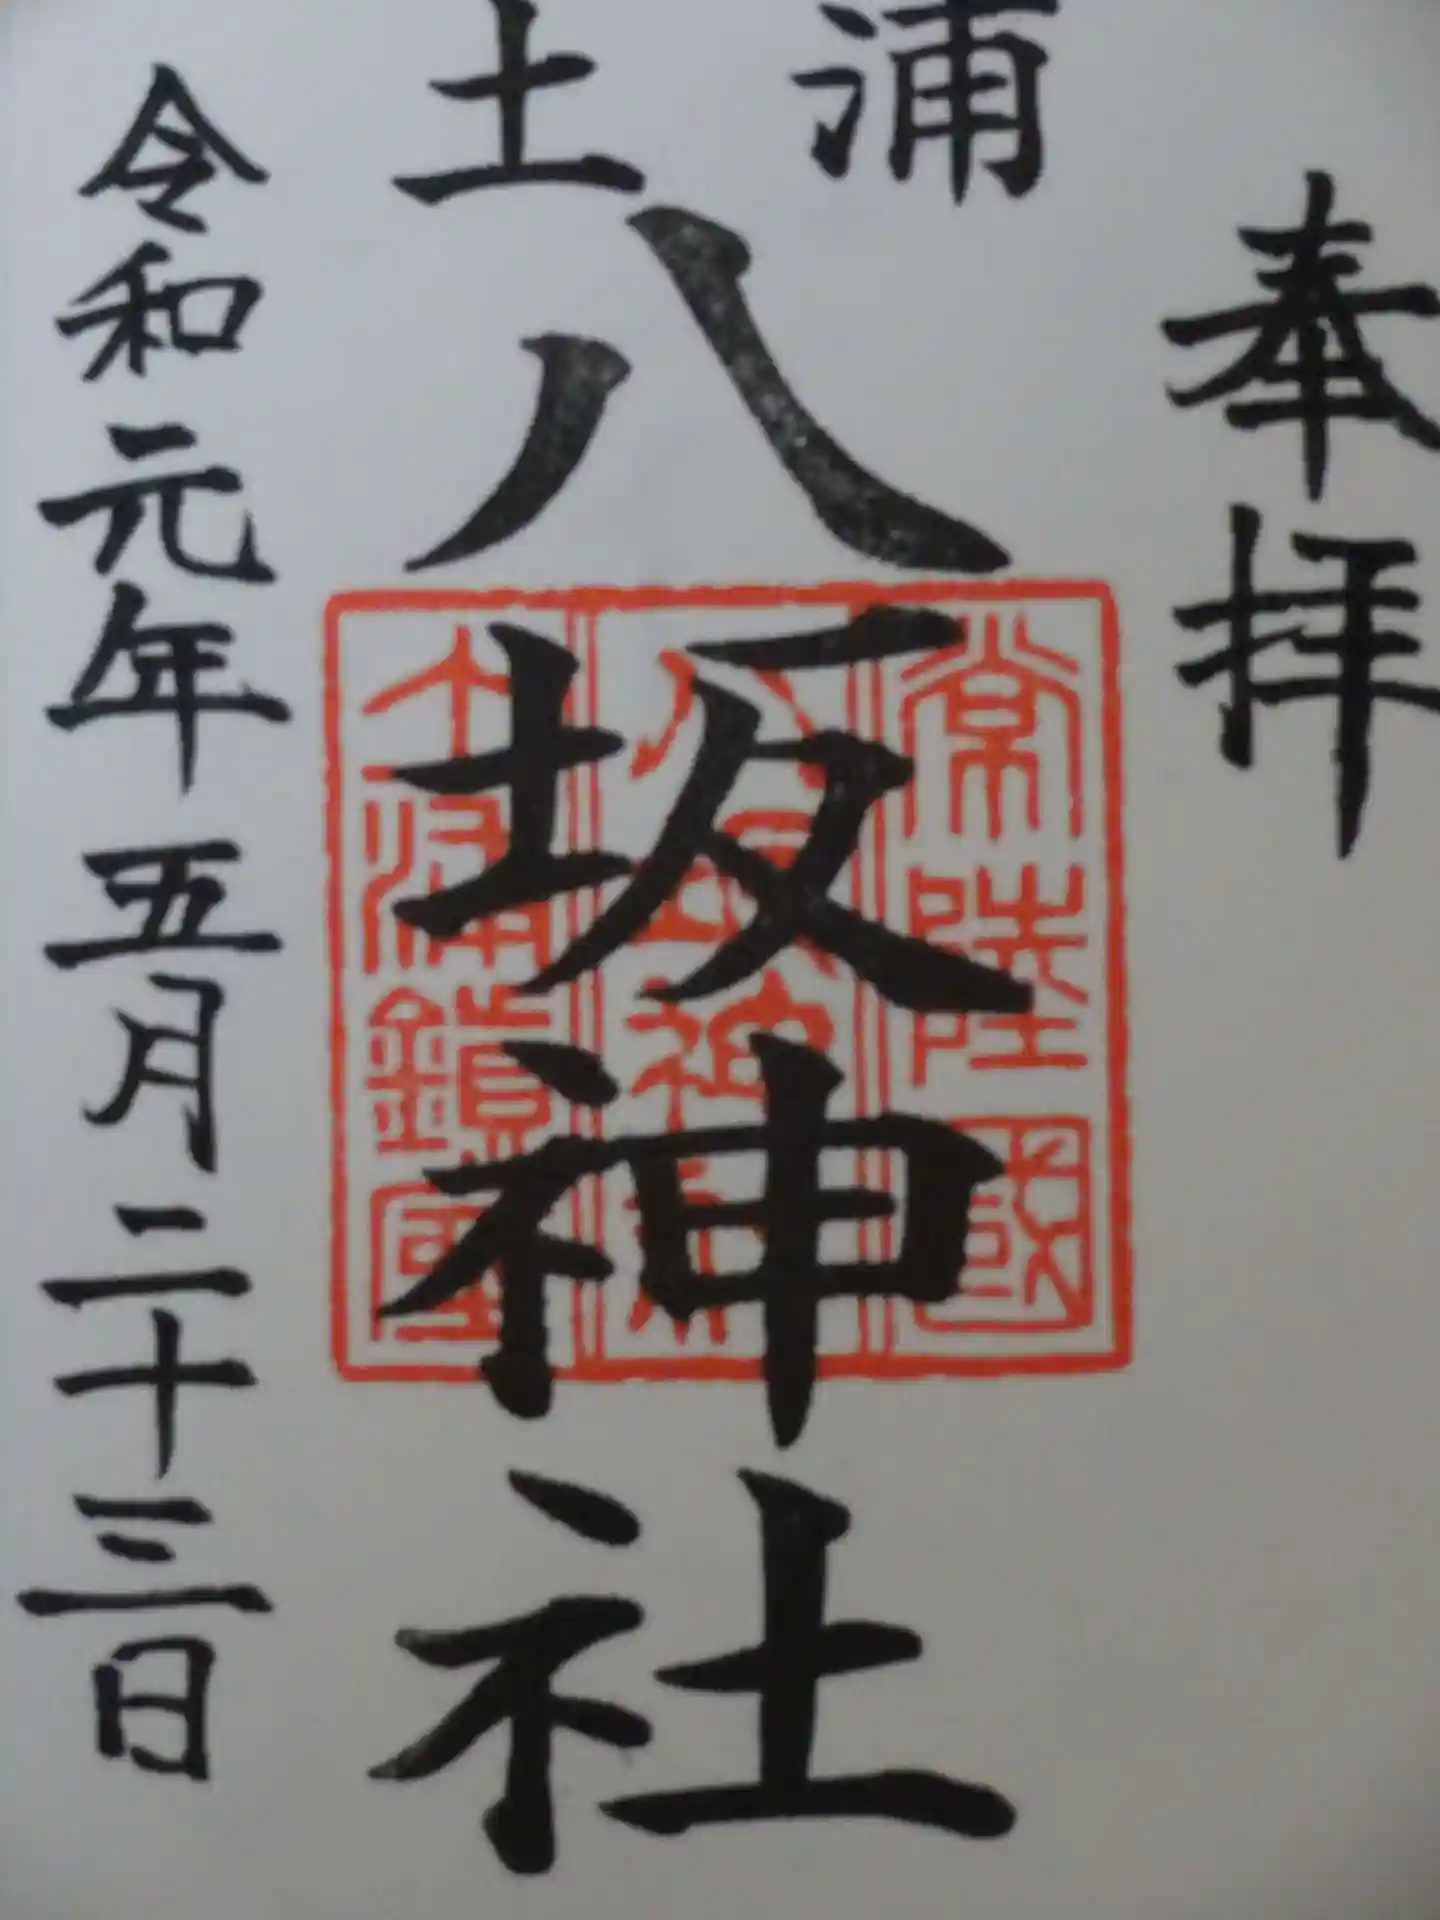 奉拝
土浦
八坂神社
常陸國
八坂神社
土浦鎮守
令和元年五月二十三日